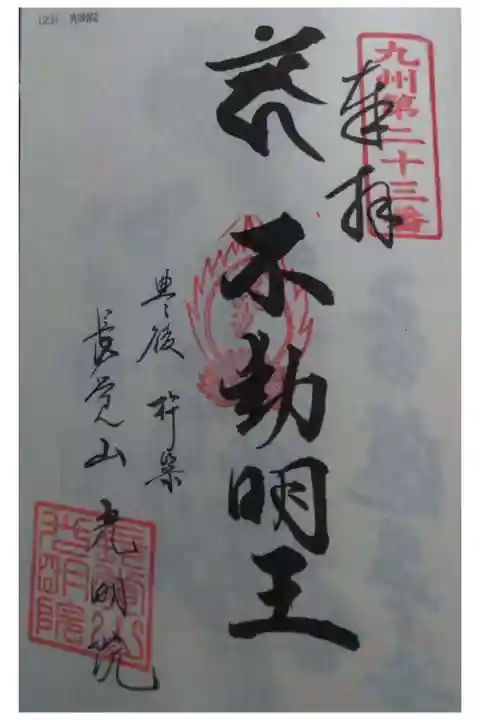 (23) 光明院
九州第二十三番
奉拝
不動明王
豊後 杵築
長覚山 光明院